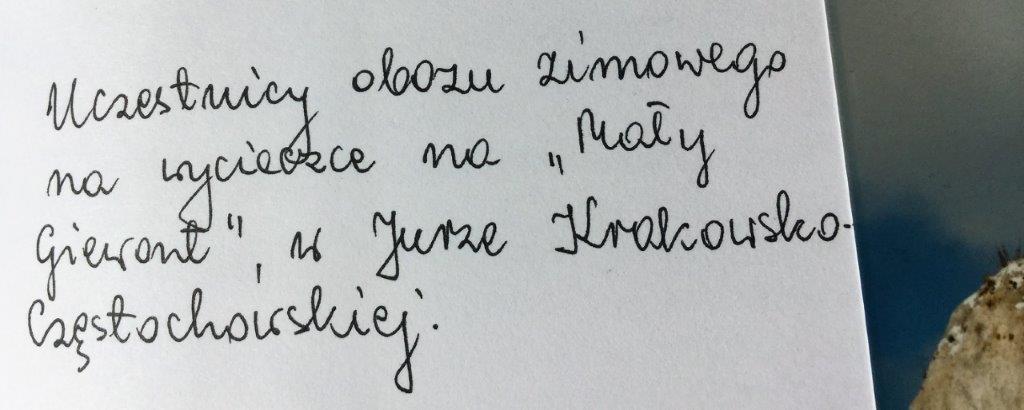 Uczestnicy obozu zimowego
na wycieczce na „Mały
Giewont", w Jurze Krakowsko-
Częstochowskiej.